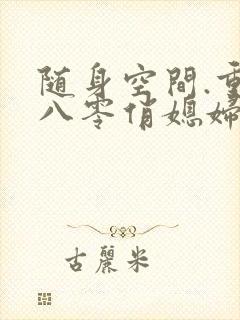 随身空間.重
八零俏媳婦
古麗米